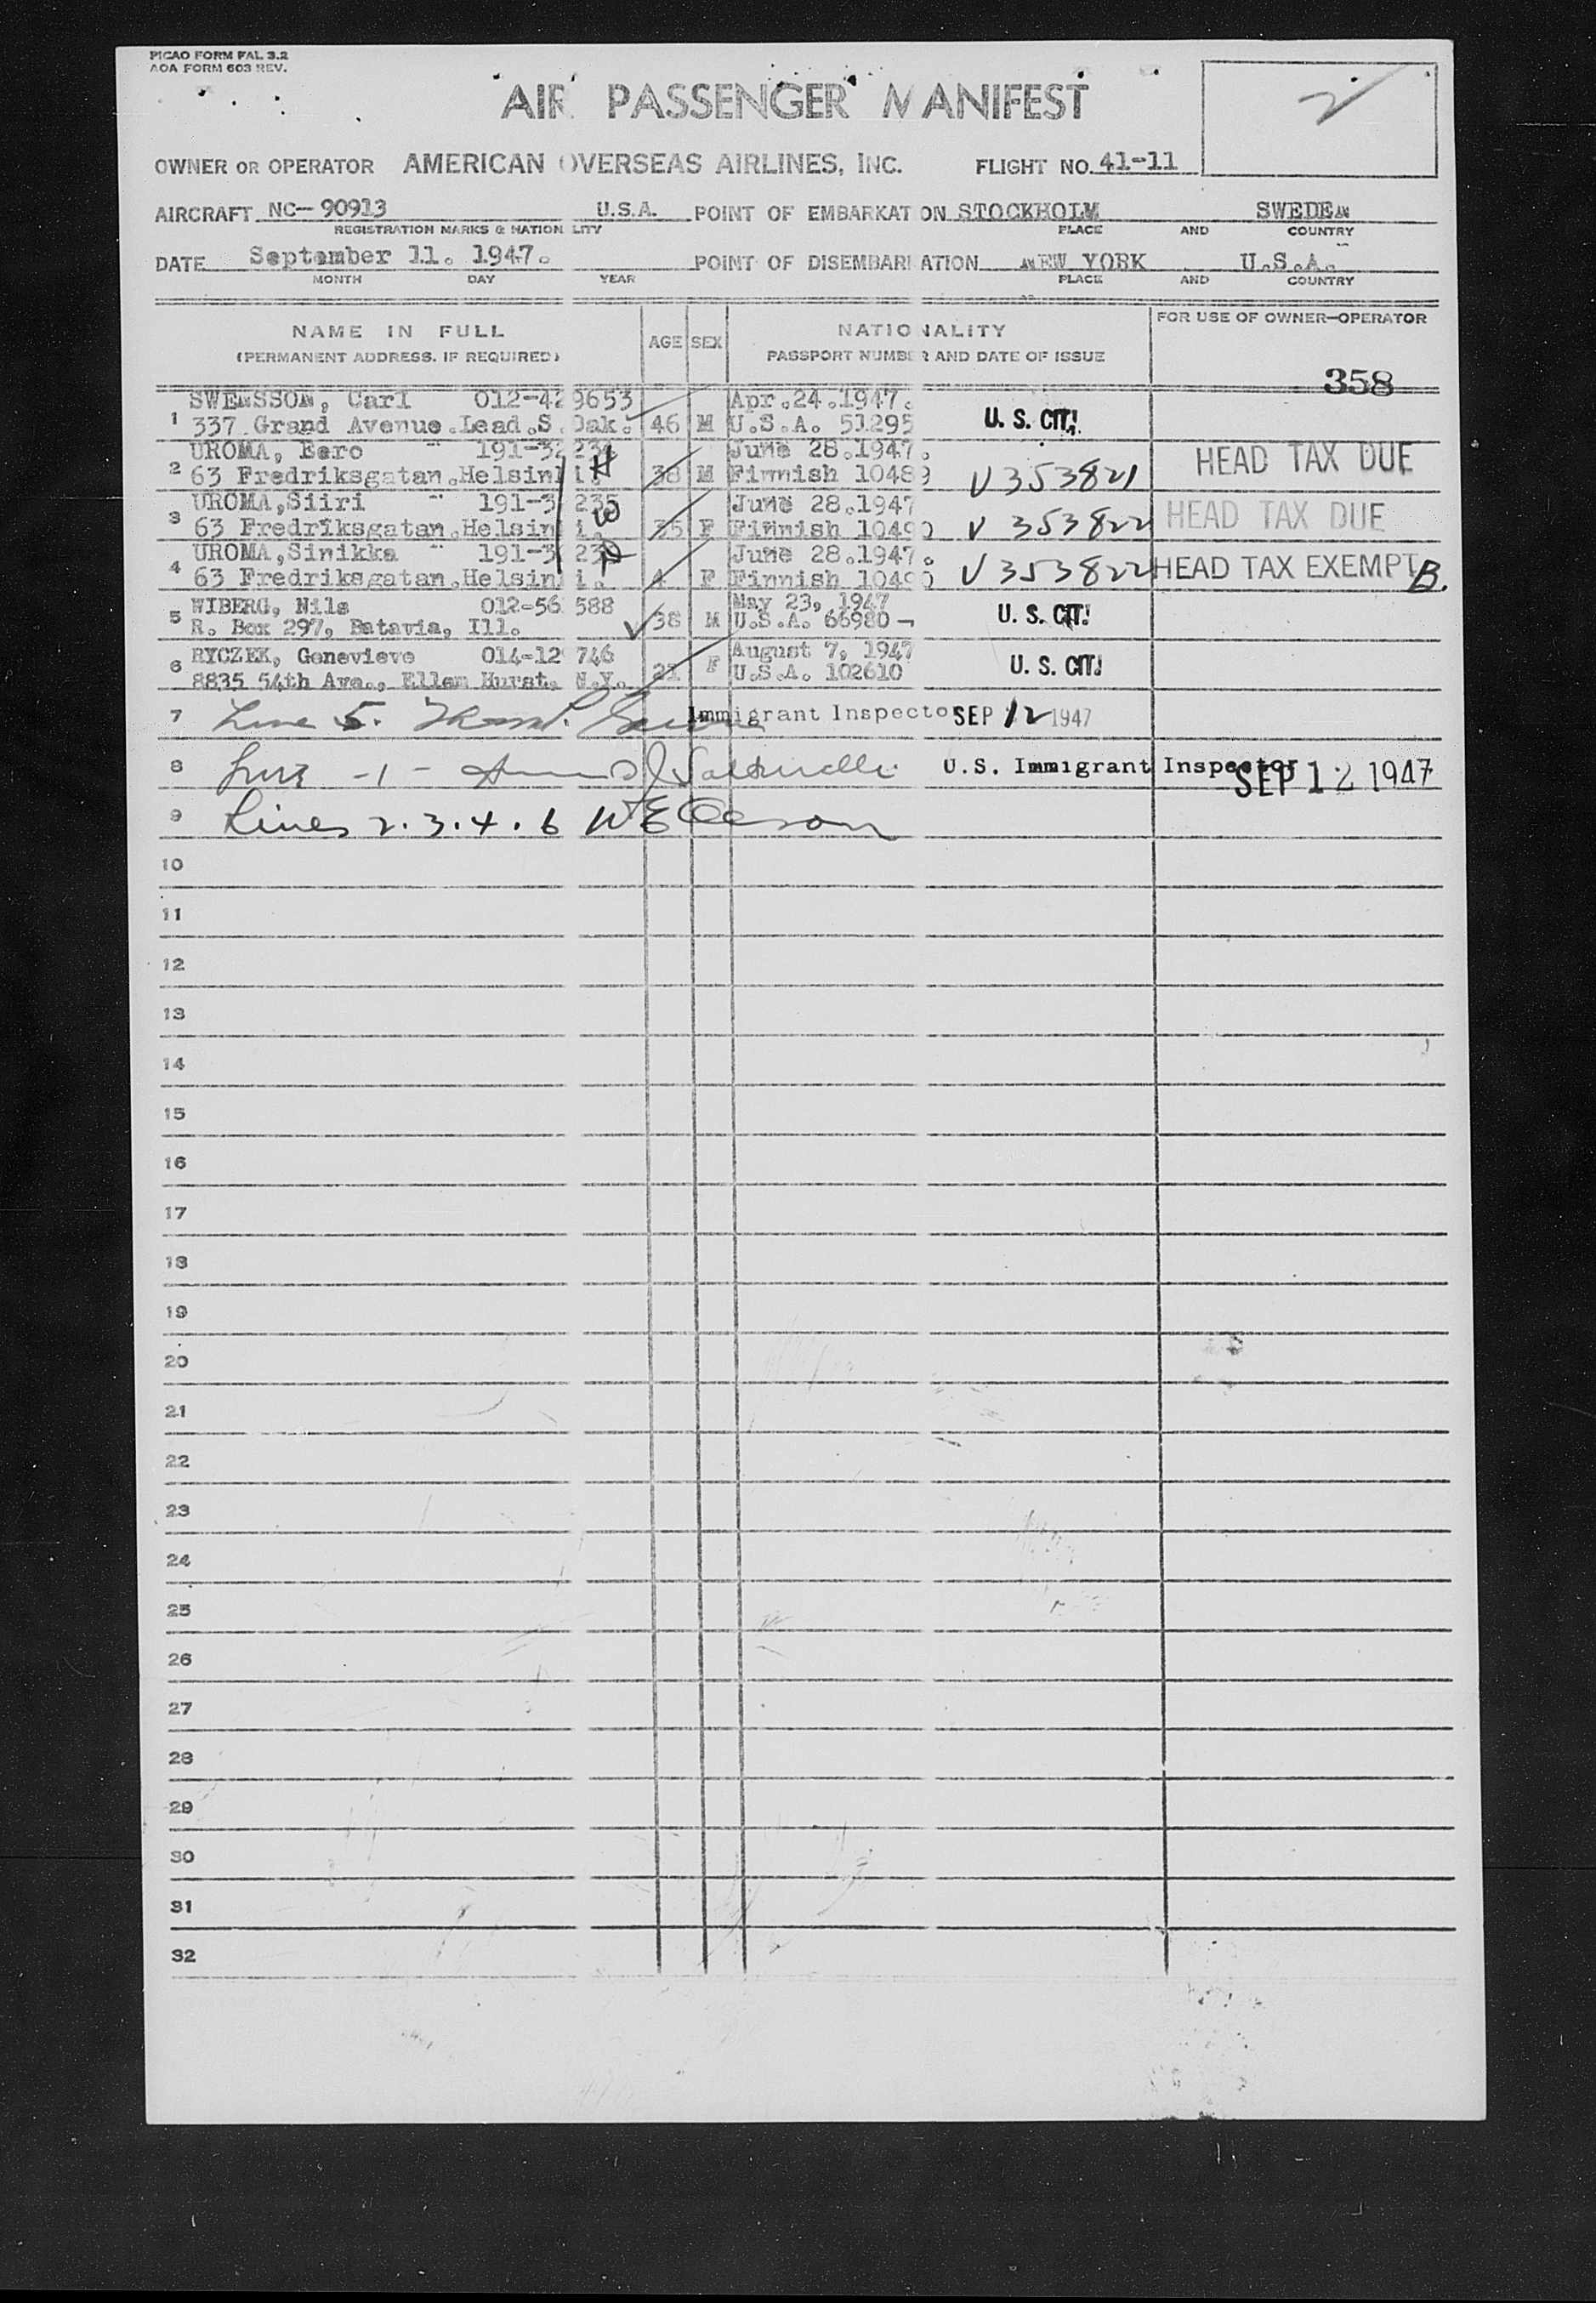 PICAO FORM FAL 3.2
AOA FORM 603 REV.
AIR PASSENGER MANIFEST
OWNER OR OPERATOR AMERICAN OVERSEAS AIRLINES, INC. FLIGHT NO. 41-11
AIRCRAFT NC- 90913 U.S.A. POINT OF EMBARKATION STOCKHOLM SWEDEN
REGISTRATION MARKS & NATIONALITY PLACE AND COUNTRY
DATE September 11. 1947. POINT OF DISEMBARKATION NEW YORK U.S.A.
MONTH DAY YEAR PLACE AND COUNTRY
NAME IN FULL AGE SEX NATIONALITY FOR USE OF OWNER-OPERATOR
(PERMANENT ADDRESS. IF REQUIRED) PASSPORT NUMBER AND DATE OF ISSUE
358
SWENSSON, Carl 012-429653 Apr.24.1947.
1 337 Grand Avenue.Lead.S.Dak. 46 M U.S.A. 51295 U. S. CIT.
UROMA, Eero 191-32234 June 28.1947.
2 63 Fredriksgatan.Helsinki. 38 M Finnish 10489 V353821 HEAD TAX DUE
UROMA,Siiri 191-3 235 June 28.1947
3 63 Fredriksgatan.Helsinki. 35 F Finnish 10490 V 353822 HEAD TAX DUE
UROMA,Sinikka 191-3 June 28.1947.
4 63 Fredriksgatan.Helsinki. 4 F Finnish 10490 V353822 HEAD TAX EXEMPT B.
WIBERG, Nils 012-56 588 May 23, 1947
5 R. Box 297, Batavia, Ill. 38 M U.S.A. 66980 U. S. CIT.
RYCZEK, Genevieve 014-12 746 August 7, 1947
6 8835 54th Ave., Ellem Hurst, N.Y. 21 F U.S.A. 102610 U. S. CIT.
7 Line 5. Immigrant Inspector SEP 12 1947
8 Line -1- U.S. Immigrant Inspector SEP 12 1947
9 Lines 2.3.4.6
10
11
12
13
14
15
16
17
18
19
20
21
22
23
24
25
26
27
28
29
30
31
32